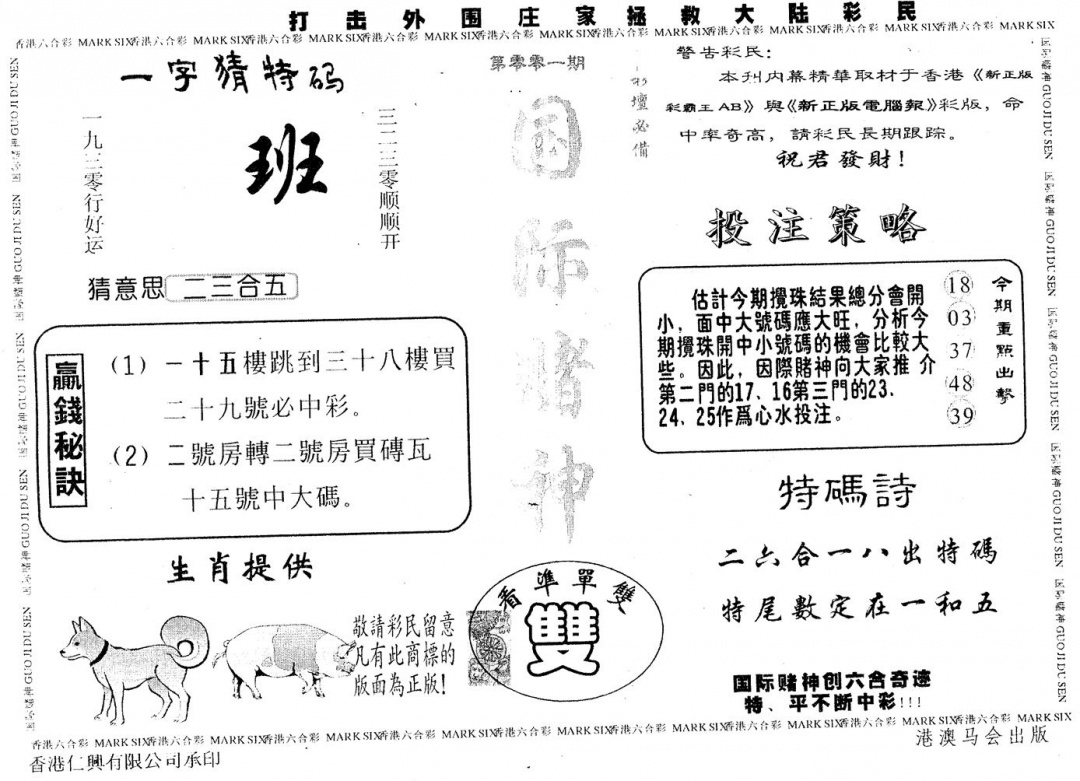 打击外围庄家拯救大陆彩民
香港六合彩 MARK SIX香港六合彩 MARK SIX香港六合彩 MARK SIX香港六合彩 MARK SIX香港六合彩 MARK SIX香港六合彩 MARK SIX
一字猜特码
一九三零行好运
班
三二二三零顺顺开
猜意思 二三合五
贏錢秘訣
(1) 一十五樓跳到三十八樓買
二十九號必中彩。
(2) 二號房轉二號房買磚瓦
十五號中大碼。
生肖提供
敬請彩民留意
凡有此商標的
版面為正版!
第零零一期
国际赌神
彩壇必備
看準單雙
雙
警告彩民:
本刊内幕精華取材于香港《新正版
彩霸王 AB》與《新正版電腦報》彩版，命
中率奇高，請彩民長期跟踪。
祝君發財!
投注策略
估計今期攪珠結果總分會開
小，面中大號碼應大旺，分析今
期攪珠開中小號碼的機會比較大
些。因此，因際賭神向大家推介
第二門的17、16第三門的23、
24、25作爲心水投注。
18
03
37
48
39
今期重點出擊
特碼詩
二六合一八出特碼
特尾數定在一和五
国际赌神创六合奇迹
特、平不断中彩!!!
国际赌神 GUO JI DU SEN 国际赌神 GUO JI DU SEN 国际赌神 GUO JI DU SEN 国际赌神 GUO JI DU SEN 国际赌神 GUO JI DU SEN
香港六合彩 MARK SIX香港六合彩 MARK SIX香港六合彩 MARK SIX香港六合彩 MARK SIX香港六合彩 MARK SIX香港六合彩 MARK SIX
香港仁興有限公司承印
港澳马会出版